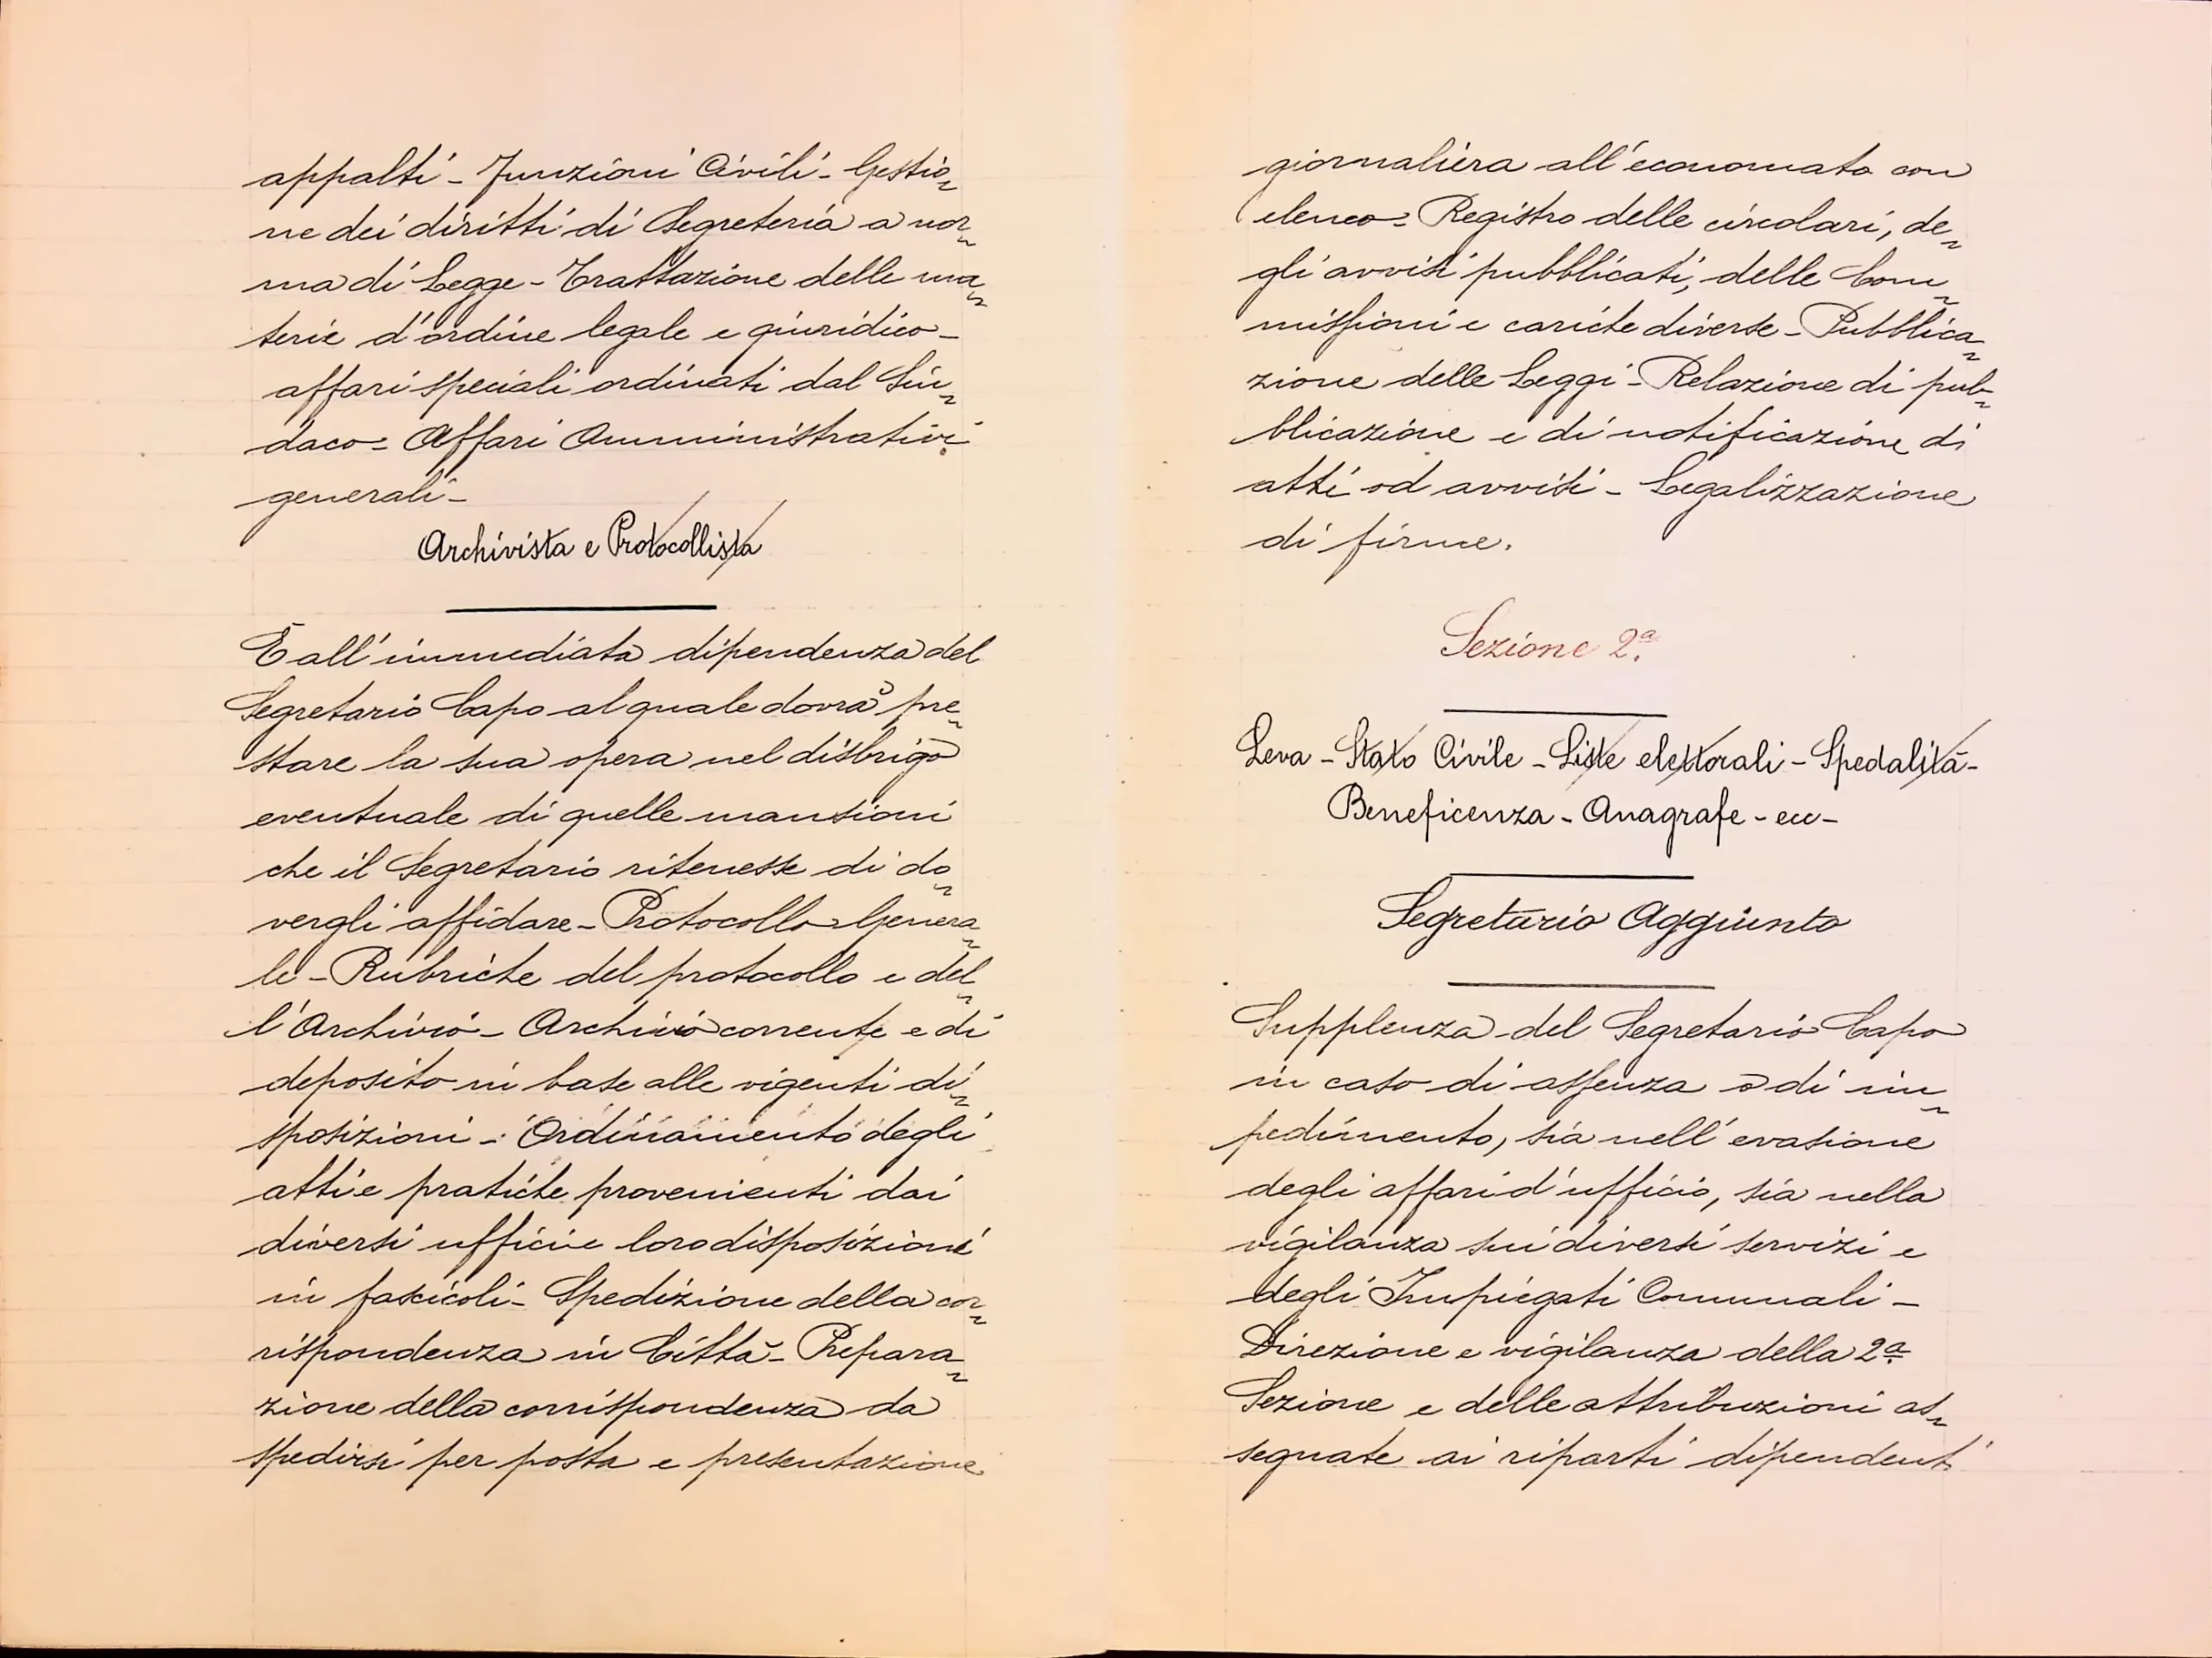 appalti - Funzioni Civili - Gestio-
ne dei diritti di Segreteria a nor-
ma di Legge - Trattazione delle ma-
terie d'ordine legale e giuridico -
affari speciali ordinati dal Sin-
daco = Affari Amministrativi
generali -
Archivista e Protocollista
È all'immediata dipendenza del
Segretario Capo al quale dovrà pre-
stare la sua opera nel disbrigo
eventuale di quelle mansioni
che il Segretario ritenesse di do-
vergli affidare - Protocollo Genera-
le - Rubriche del protocollo e del-
l'Archivio - Archivio corrente e di
deposito in base alle vigenti di-
sposizioni - Ordinamento degli
atti e pratiche provenienti dai
diversi uffici e loro disposizione
in fascicoli - Spedizione della cor-
rispondenza in Città - Prepara-
zione della corrispondenza da
spedirsi per posta e presentazione
giornaliera all'economato con
elenco = Registro delle circolari, de-
gli avvisi pubblicati, delle Com-
missioni e cariche diverse - Pubblica-
zione delle Leggi - Relazione di pub-
blicazione e di notificazione di
atti od avvisi - Legalizzazione
di firme.
Sezione 2ª
Leva - Stato Civile - Liste elettorali - Spedalità -
Beneficenza - Anagrafe - ecc -
Segretario Aggiunto
Supplenza del Segretario Capo
in caso di assenza o di im-
pedimento, sia nell'evasione
degli affari d'ufficio, sia nella
vigilanza sui diversi servizi e
degli Impiegati Comunali -
Direzione e vigilanza della 2ª
Sezione e delle attribuzioni as-
segnate ai riparti dipendenti